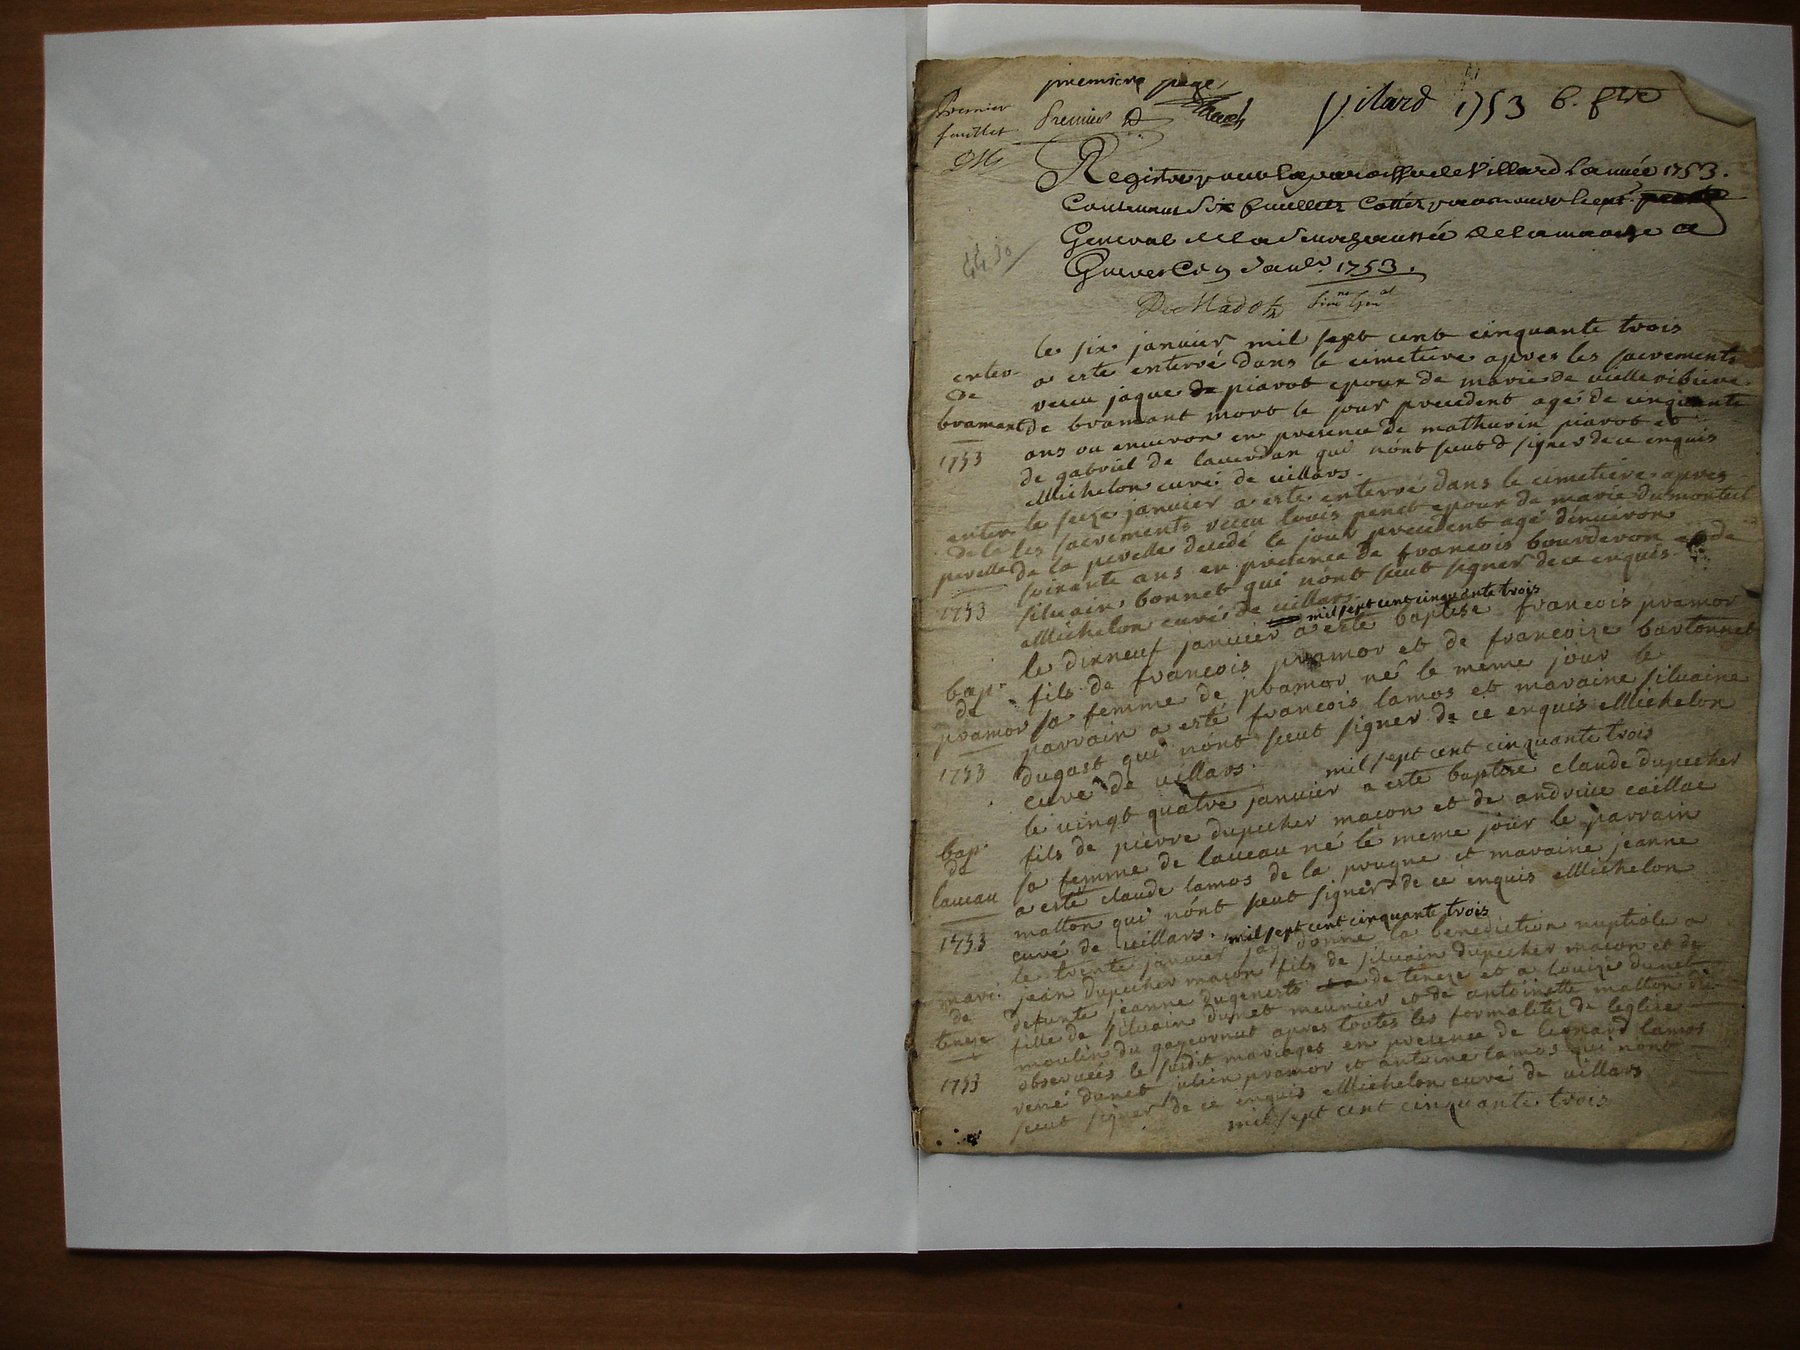 premiere page
Premier
feuillet
Premier
Vilard 1753 6. fts
Registre pour la paroisse de Villard L'année 1753.
Contenant Six feuillets Cottés par nous
General de la Senechaussée de la marche a
Gueret Ce 9 Janer 1753.
le six janvier mil sept cent cinquante trois
a este enterré dans le cimetiere apres les sacrements
receu jaque de piarot epoux de marie de vielle ribiere
de bramant mort le jour precedent agé de cinquante
ans ou environ en presence de mathurin piarot et
de gabriel de laverdan qui n'ont sceut signer de ce enquis
Michelon curé de villars.
enter
de
bramant
1753
le seize janvier a este enterré dans le cimetiere apres
les sacrements receu louis penot epoux de marie dumonteil
de la perelle decedé le jour precedent agé d'environ
soixante ans en presence de francois bourderon et de
silvain bonnet qui n'ont sceut signer de ce enquis
Michelon curé de villars.
enter
de la
perelle
1753
mil sept cent cinquante trois
le dixneuf janvier a este baptise francois pramor
fils de francois pramor et de francoise bartonnet
sa femme de pramor né le meme jour le
parrain a esté francois lamos et maraine silvaine
dugast qui n'ont sceut signer de ce enquis Michelon
curé de villars.
bap.
de
pramor
1753
mil sept cent cinquante trois
le vingt quatre janvier a este baptise claude dupecher
fils de pierre dupecher macon et de andreue caillac
sa femme de laveau né le meme jour le parrain
a esté claude lamos de la prugne et maraine jeanne
matton qui n'ont sceut signer de ce enquis Michelon
curé de villars.
bap.
de
laveau
1753
mil sept cent cinquante trois
le trente janvier jay donne la benediction nuptiale a
jean dupecher macon fils de silvain dupecher macon et de
defunte jeanne dugenests de teneze et a louise dunet
fille de silvain dunet meunier et de antoinette matton du
moulin du apres toutes les formalites de leglise
observeés le susdit mariages en presence de leonard lamos
rené dunet julien pramor et antoine lamos qui n'ont
sceut signer de ce enquis Michelon curé de villars
mil sept cent cinquante trois
mari.
de
teneze
1753